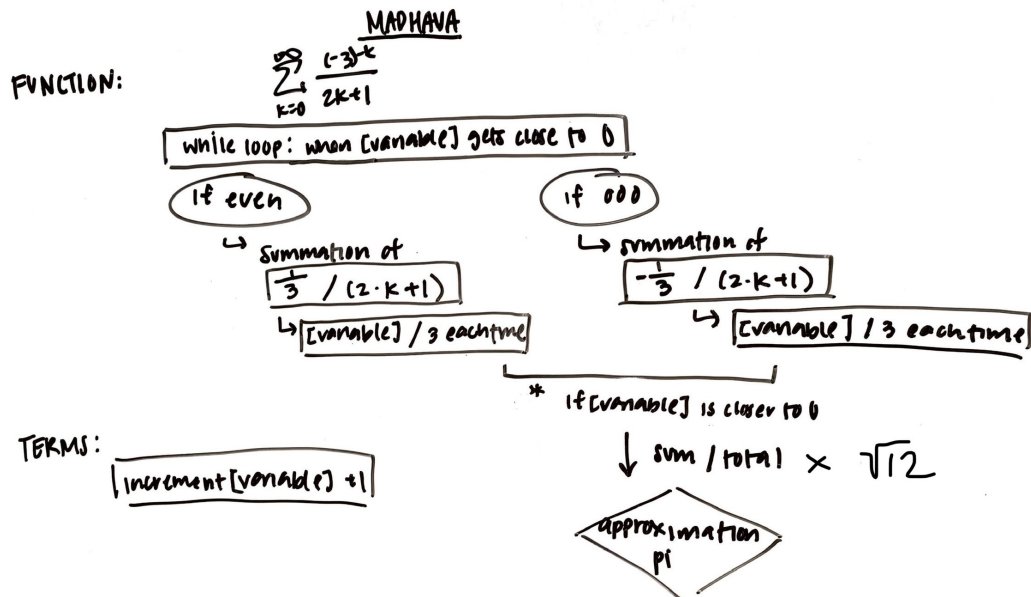 MADHAVA
FUNCTION:
∞
∑ (-3)^-k / 2k+1
k=0
while loop: when [variable] gets close to 0
if even
if odd
↳ summation of
1/3 / (2·k+1)
↳ [variable] / 3 each time
↳ summation of
-1/3 / (2·k+1)
↳ [variable] / 3 each time
* if [variable] is closer to 0
↓ sum / total × √12
approximation
pi
TERMS:
increment [variable] +1